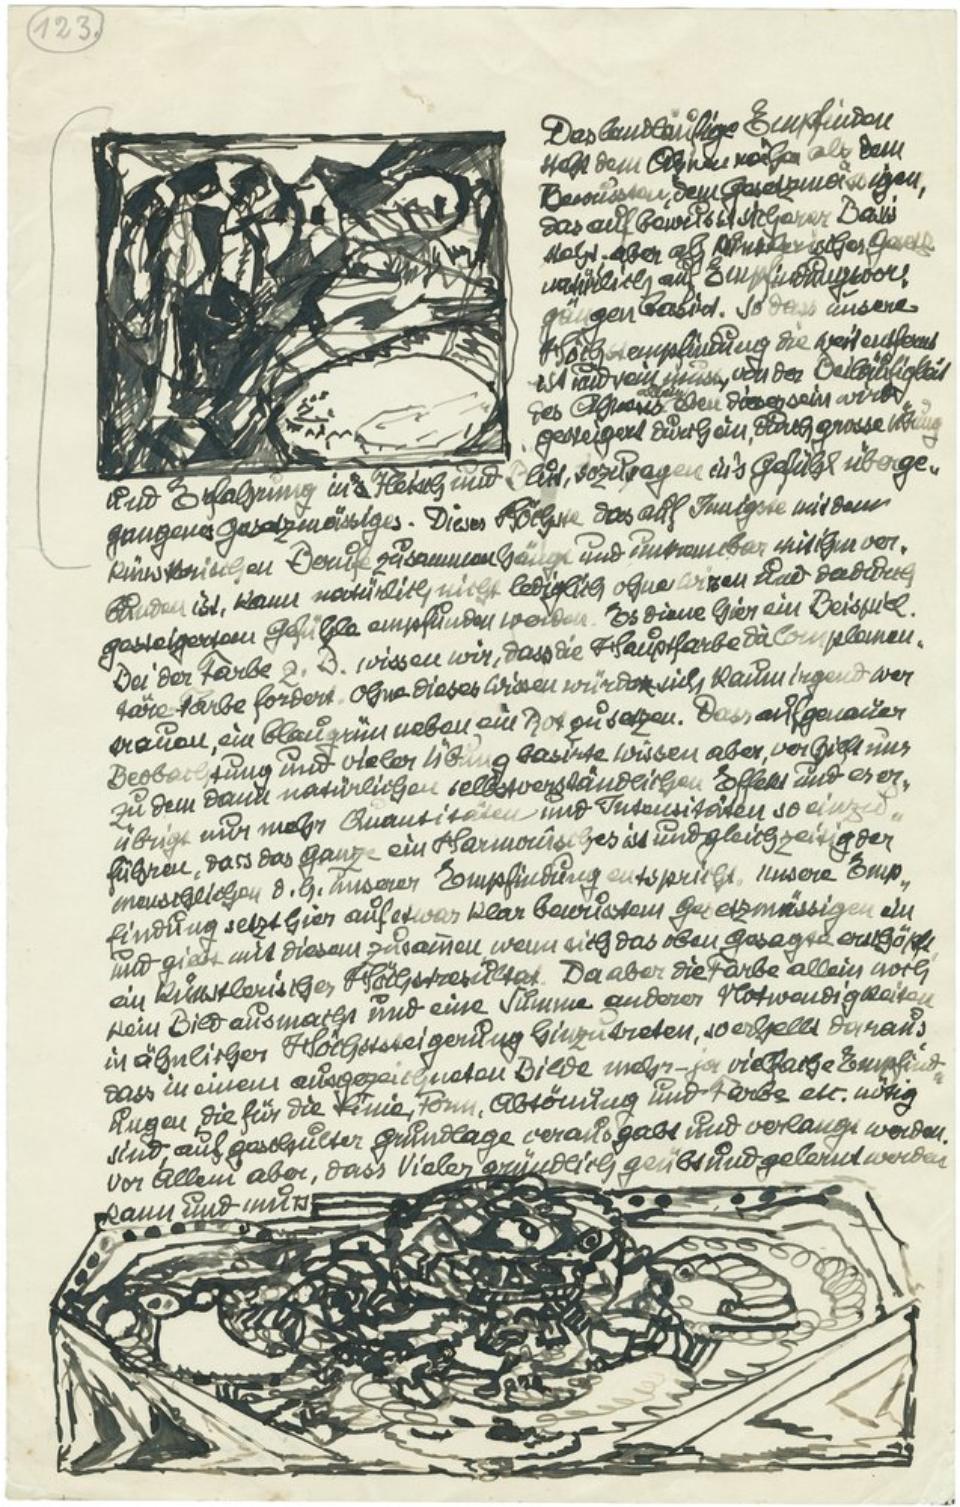 123.
Das landläufige Empfinden
steht dem Ahnen näher als dem
Bewussten, dem Gesetzmässigen,
das auf bewusst sicherer Basis
steht. aber als künstlerisches Gesetz
natürlich auf Empfindungsvor-
gängen basirt. So dass unsere
Höchstempfindung die weit entfernt
ist und sein muss, von der Beiläufigkeit
des Ahnens allein. Den dieses sein wird
gesteigert durch ein, durch grosse Übung
und Erfahrung in's Fleisch und Blut, sozusagen in's Gefühl überge-
gangenes Gesetzmässiges. Dieses Höchste das auf Innigste mit dem
künstlerischen Berufe zusammenhängt und untrennbar mit ihm ver-
bunden ist, kann natürlich nicht lediglich ohne wissen und dadurch
gesteigertem Gefühle empfunden werden. Es diene hier ein Beispiel.
Bei der Farbe z. B. wissen wir, dass die Hauptfarbe die Complemen-
täre Farbe fordert. Ohne dieses Wissen würde sich kaum irgend wer
trauen, ein blaugrün neben ein Rot zu setzen. Dass auf genauer
Beobachtung und vieler Übung basirte wissen aber, verhilft uns
zu dem dann natürlichen selbstverständlichen Effekt und es er-
übrigt nur mehr Quantitäten und Intensitäten so einzu-
führen, dass das Ganze ein Harmonisches ist und gleichzeitig der
menschlichen d. h. unserer Empfindung entspricht. unsere Emp-
findung setzt hier auf etwas klar bewusstem Gesetzmässigen ein
und giebt mit diesem zusamen, wenn sich das oben Gesagte erschöpft
ein künstlerisches Höchstresultat. Da aber die Farbe allein noch
kein Bild ausmacht und eine Summe anderer Notwendigkeiten
in ähnlicher Höchststeigerung hinzutreten, so erhellt daraus
dass in einem ausgezeichneten Bilde mehr – ja vielfache Empfind-
ungen die für die Linie, Form, Abtönung und Farbe etc. nötig
sind, auf geschulter Grundlage verausgabt und verlangt werden.
vor Allem aber, dass Vieles gründlich geübt und gelernt werden
kann und muss